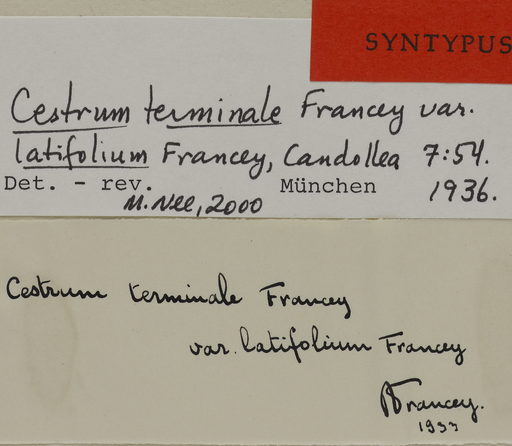 SYNTYPUS
Cestrum terminale Francey var.
latifolium Francey, Candollea 7:54.
Det. - rev. München 1936.
M. Nee, 2000
Cestrum terminale Francey
var. latifolium Francey
Francey.
1933